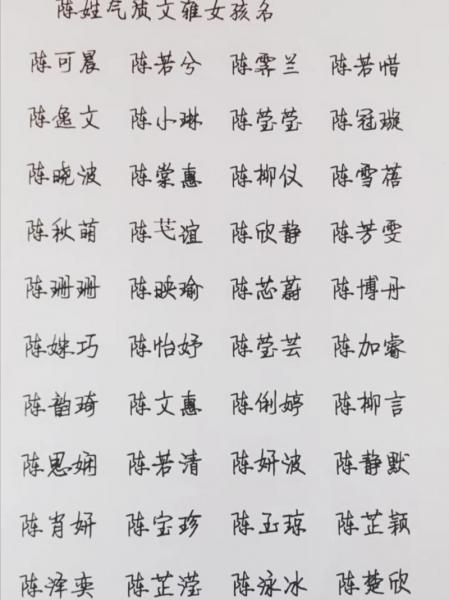 陈姓气质文雅女孩名
陈可晨 陈若兮 陈霁兰 陈若惜
陈逸文 陈小琳 陈莹莹 陈冠璇
陈晓波 陈棠惠 陈柳仪 陈雪蓓
陈秋萌 陈芑谊 陈欣静 陈芳雯
陈珊珊 陈映瑜 陈芯蔚 陈博丹
陈姝巧 陈怡妤 陈莹芸 陈加睿
陈韵琦 陈文惠 陈俐婷 陈柳言
陈思娴 陈若清 陈妍波 陈静默
陈肖妍 陈宝珍 陈玉琼 陈芷颖
陈泽奕 陈芷滢 陈泳冰 陈楚欣